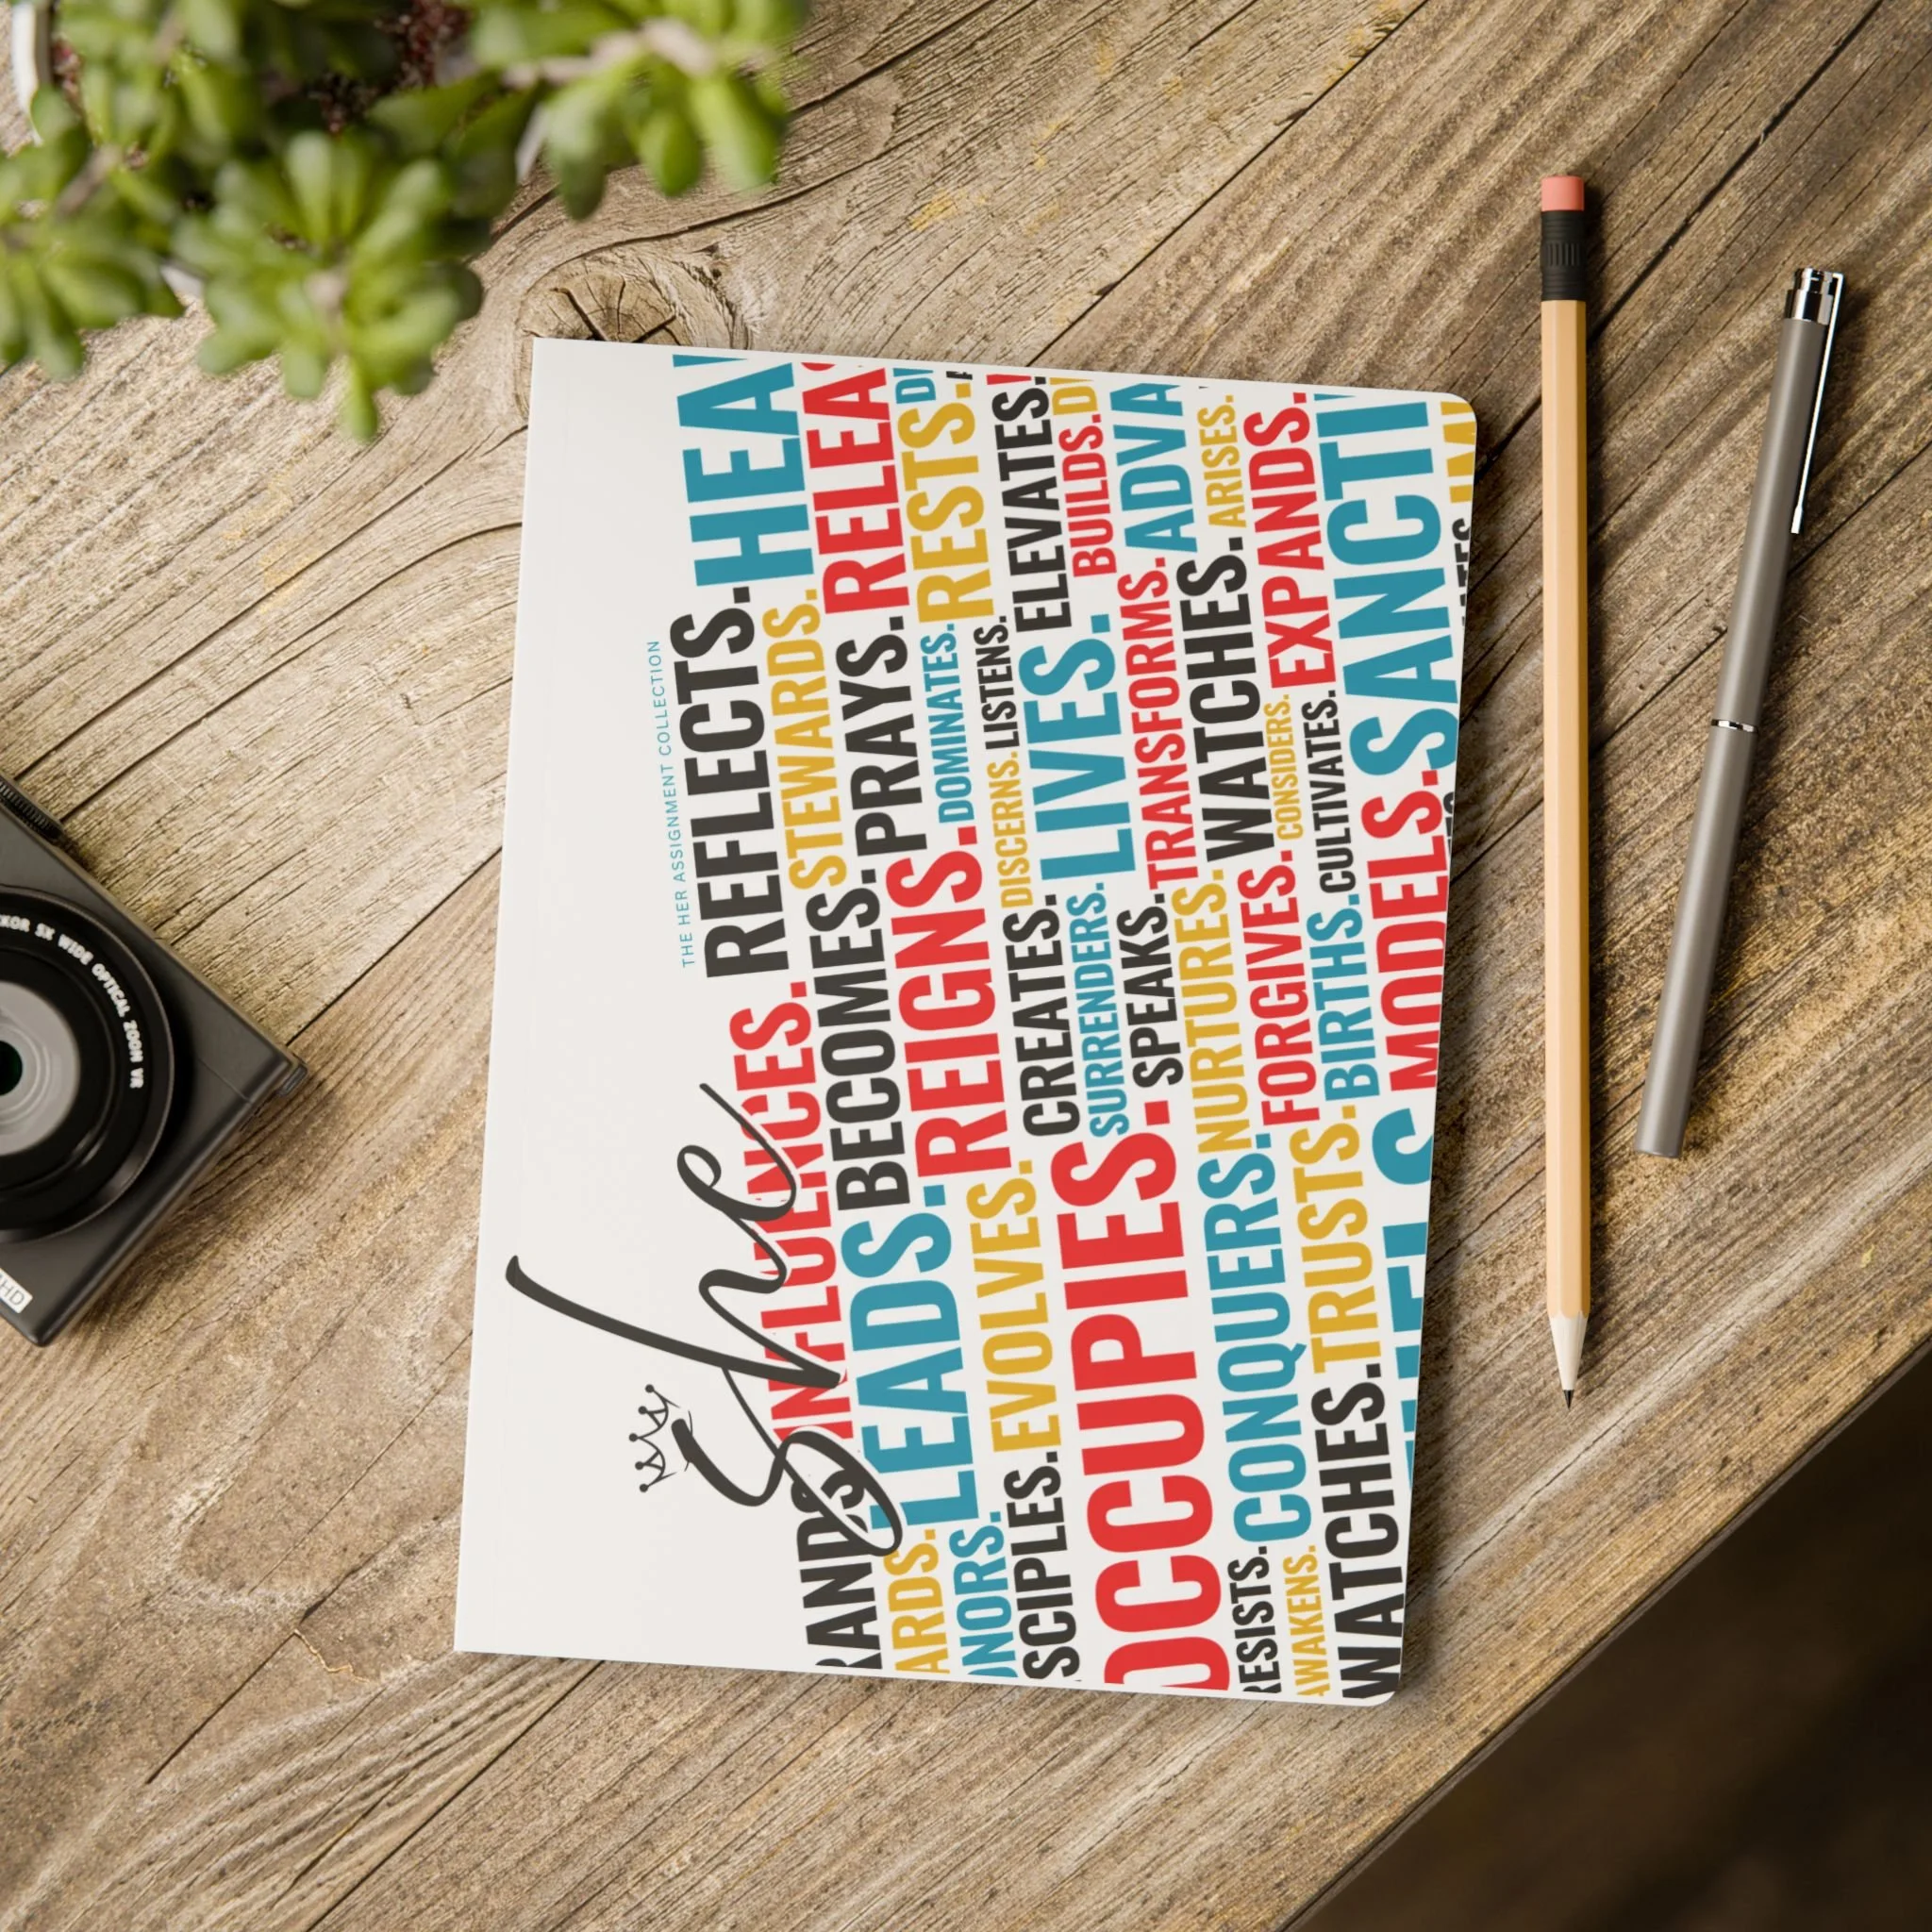 THE HER ASSIGNMENT COLLECTION
She
INFLUENCES. REFLECTS.
BECOMES. STEWARDS.
LEADS. PRAYS.
REIGNS. DOMINATES. RESTS.
EVOLVES. DISCERNS. LISTENS.
CREATES. LIVES. ELEVATES.
SURRENDERS. BUILDS.
OCCUPIES. SPEAKS. TRANSFORMS.
CONQUERS. NURTURES. WATCHES. ARISES.
RESISTS. FORGIVES. CONSIDERS. EXPANDS.
AWAKENS. TRUSTS. BIRTHS. CULTIVATES.
WATCHES. MODELS.
5X WIDE OPTICAL ZOOM VR
HD